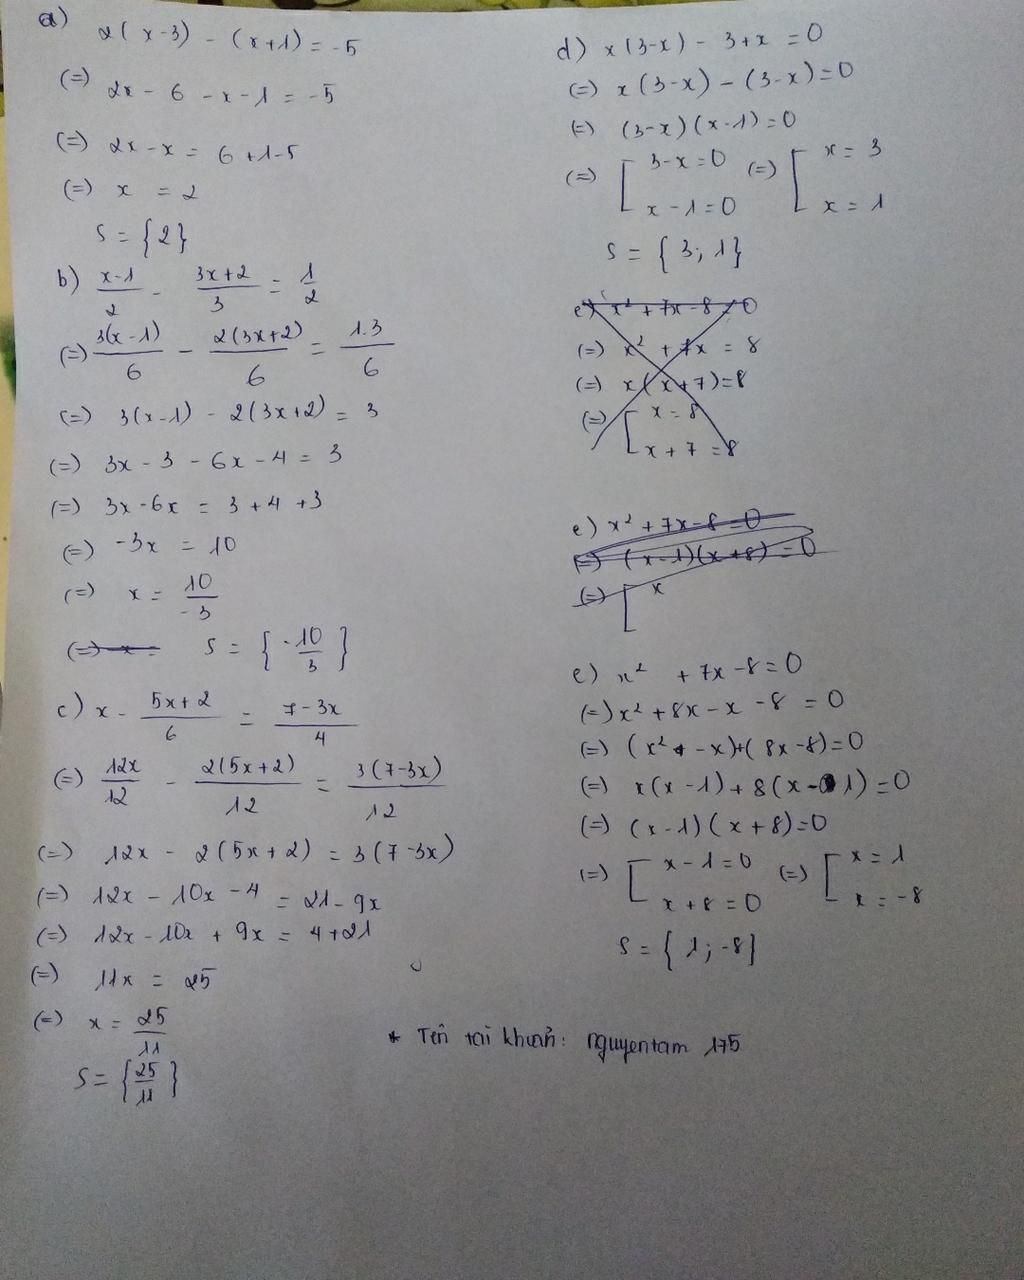 a) 2(x-3) - (x+1) = -5
(=) 2x - 6 - x - 1 = -5
(=) 2x - x = 6 + 1 - 5
(=) x = 2
S = {2}
b) \frac{x-1}{2} - \frac{3x+2}{3} = \frac{1}{2}
(=) \frac{3(x-1)}{6} - \frac{2(3x+2)}{6} = \frac{1.3}{6}
(=) 3(x-1) - 2(3x+2) = 3
(=) 3x - 3 - 6x - 4 = 3
(=) 3x - 6x = 3 + 4 + 3
(=) -3x = 10
(=) x = \frac{10}{-3}
(=) x = S = {\frac{-10}{3}}
c) x - \frac{5x+2}{6} = \frac{7-3x}{4}
(=) \frac{12x}{12} - \frac{2(5x+2)}{12} = \frac{3(7-3x)}{12}
(=) 12x - 2(5x+2) = 3(7-3x)
(=) 12x - 10x - 4 = 21 - 9x
(=) 12x - 10x + 9x = 4 + 21
(=) 11x = 25
(=) x = \frac{25}{11}
S = {\frac{25}{11}}
d) x(3-x) - 3 + x = 0
(=) x(3-x) - (3-x) = 0
(=) (3-x)(x-1) = 0
(=) [ 3-x = 0 (=) [ x = 3
x - 1 = 0 x = 1
S = {3; 1}
e) x² + 7x - 8 = 0
(=) x² + 7x = 8
(=) x(x+7) = 8
(=) [ x = 8
x + 7 = 8
e) x² + 7x - 8 = 0
(=) (x-1)(x+8) = 0
(=) [ x
e) x² + 7x - 8 = 0
(=) x² + 8x - x - 8 = 0
(=) (x² - x) + (8x - 8) = 0
(=) x(x-1) + 8(x-1) = 0
(=) (x-1)(x+8) = 0
(=) [ x - 1 = 0 (=) [ x = 1
x + 8 = 0 x = -8
S = {1; -8}
* Tên tài khoản: nguyentam 175